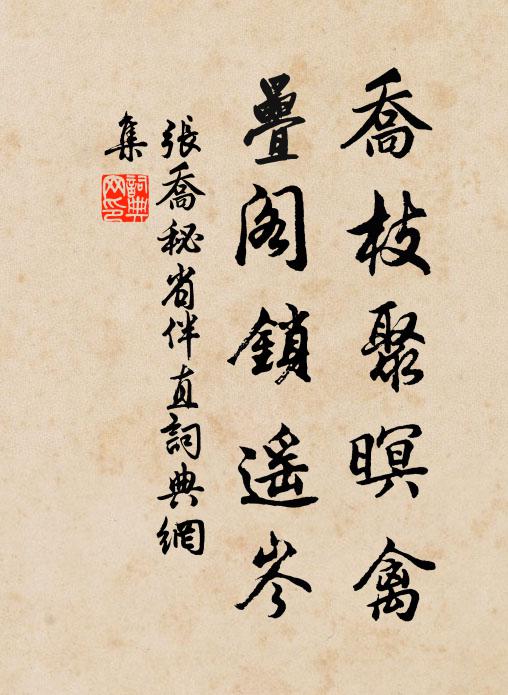 喬枝聚暝禽
疊閣鎖遥岑
張喬秘省伴直詞典網
集
詞典网印